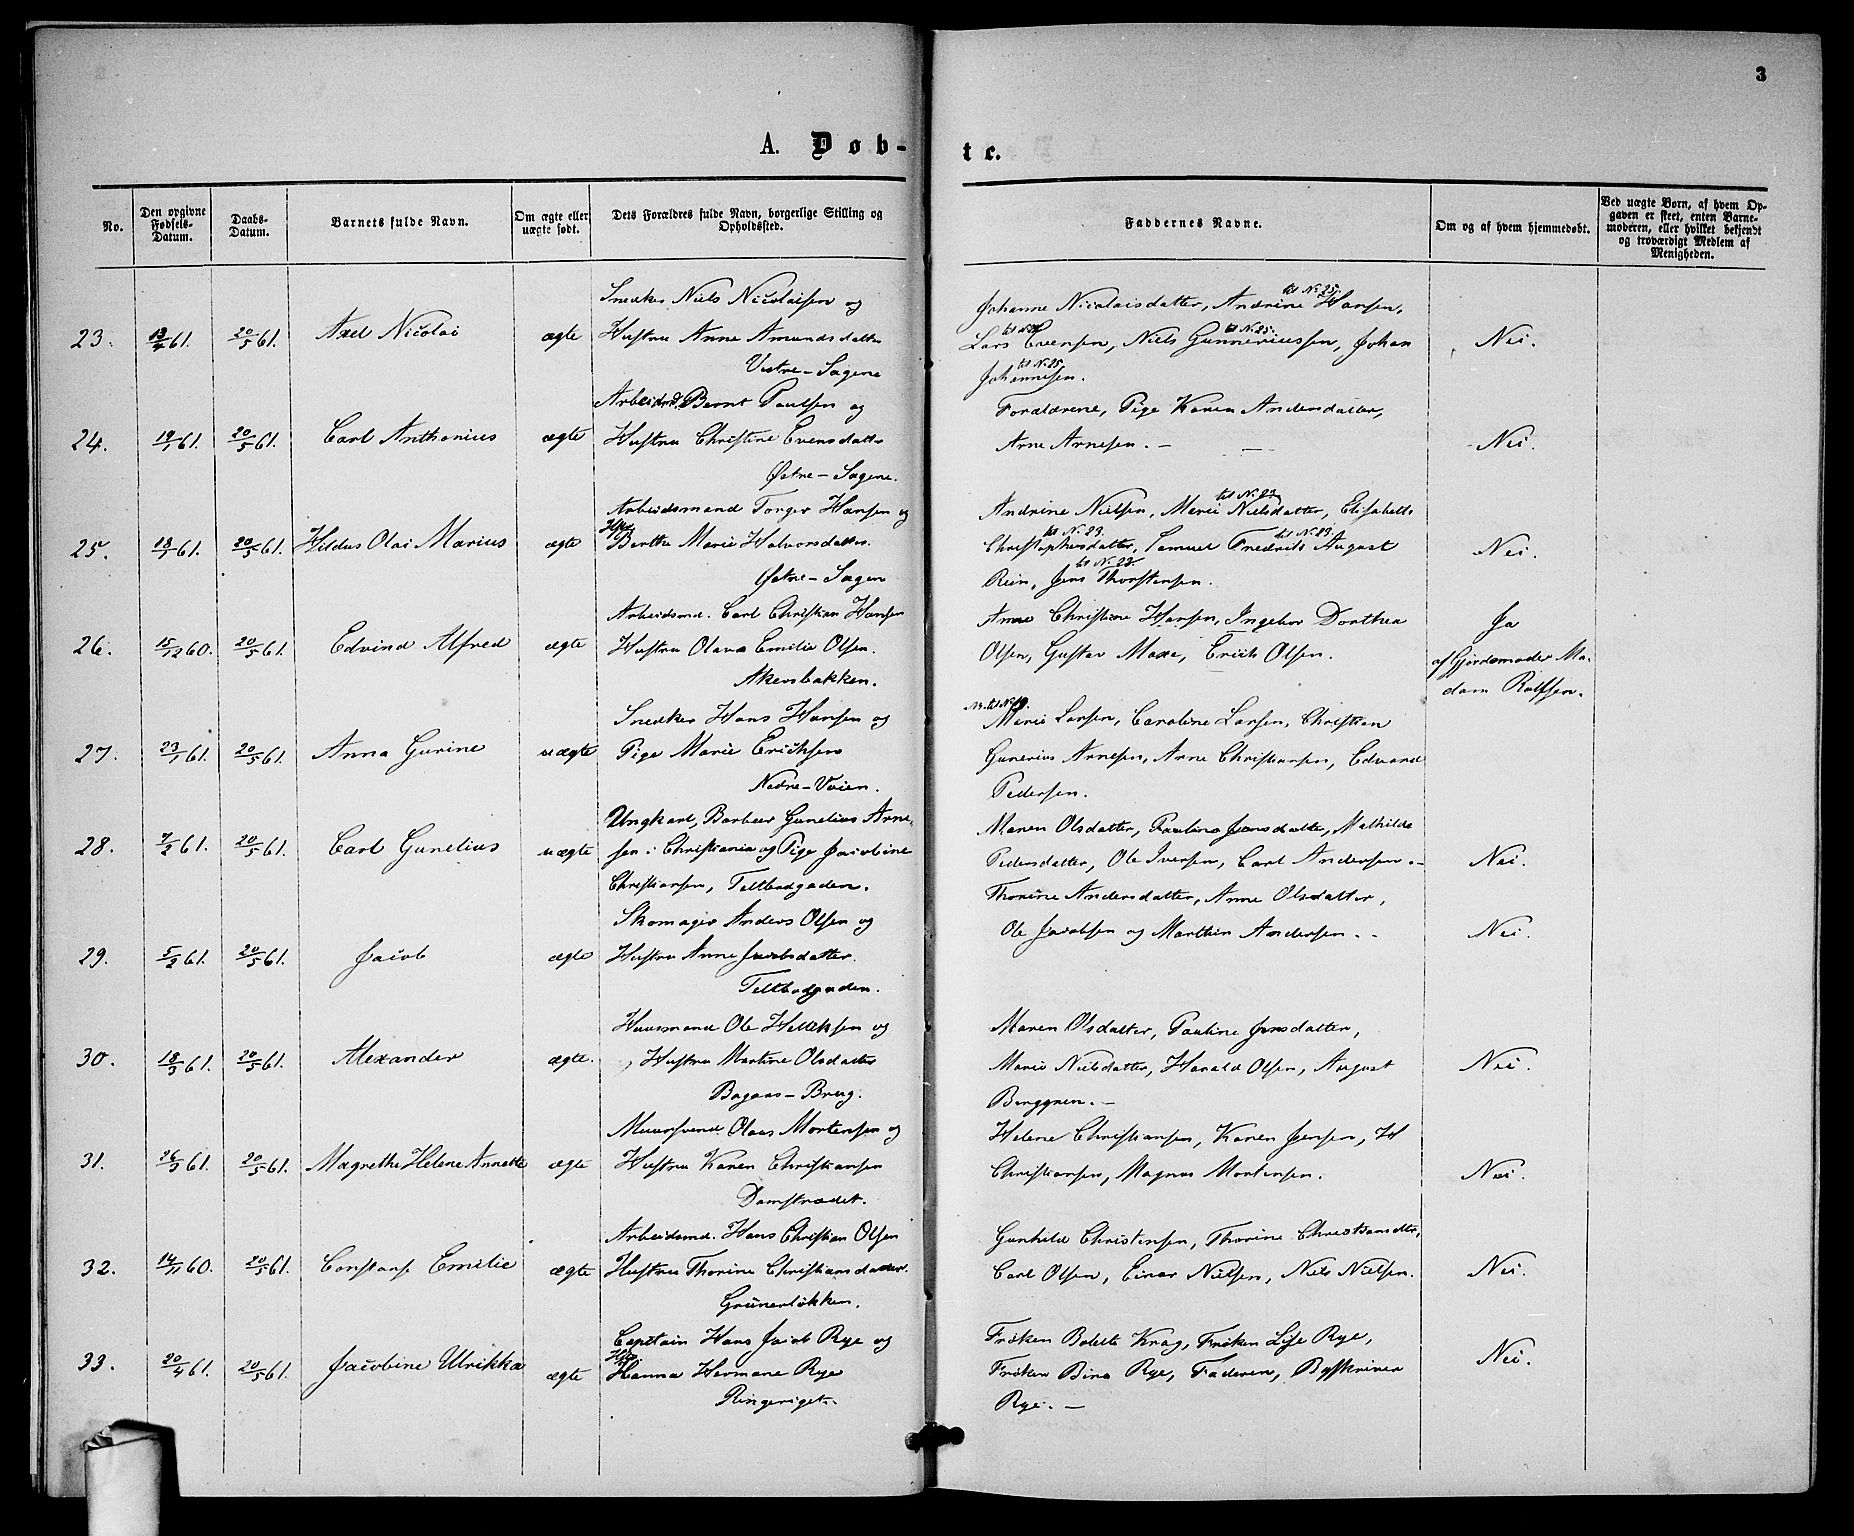 3
A. Døb-
te.
No.
Den opgivne Fødsels-Datum.
Daabs-Datum.
Barnets fulde Navn.
Om ægte eller uægte født.
Dets Forældres fulde Navn, borgerlige Stilling og Opholdssted.
Faddernes Navne.
Om og af hvem hjemmedøbt.
Ved uægte Born, af hvem Opgaven er skeet, enten Barnemoderen, eller hvilket bekjendt og troværdigt Medlem af Menigheden.
Snedker Niels Nicolaisen og
23. 13/4 61. 20/5 61. Axel Nicolai ægte Hustru Anne Amundsdatter
Vestre-Sagene
til No. 25.
Johanne Nicolaisdatter, Andrine Hansen,
til No. 25.
Lars Evensen, Niels Gunneriussen, Johan
til No. 25.
Johannesen.
Nei.
Arbeidsmd. Bernt Paulsen og
24. 19/1 61. 20/5 61. Carl Anthonius ægte Hustru Christine Evensdatter
Østre-Sagene.
Forældrene, Pige Karen Andersdatter,
Arne Arnesen. — —
Nei.
Arbeidsmand Torger Hansen og
Hst.
25. 13/1 61. 20/5 61. Hildus Olai Marius ægte Berthe Marie Halvorsdatter.
Østre-Sagene
til No. 23.
Andrine Nielsen, Marie Nielsdatter, Elisabeth
til No. 23. til No. 23.
Christophersdatter, Samuel Fredrik August
til No. 23.
Rein, Jens Thorstensen.
Nei.
Arbeidsmd. Carl Christian Hansen
26. 15/12 60. 20/5 61. Edvind Alfred ægte Hustru Olava Emilie Olsen.
Akersbakken.
Anne Christine Hansen, Ingebor Dorthea
Olsen, Gustav Moxe, Erick Olsen.
Ja
af Gjordemoder Ma-
dam Rolfsen.
Snedker Hans Hansen og
27. 23/1 61. 20/5 61. Anna Gurine uægte Pige Marie Ericksen
Nedre-Voien.
Marie Larsen, Caroline Larsen, Christian
Gunerius Arnesen, Arne Christiansen, Edvard
Pedersen.
Ungkarl, Barbeer Gunelius Arne-
28. 7/2 61. 20/5 61. Carl Gunelius uægte sen i Christiania og Pige Jacobine
Christiansen, Teltbodgaden.
Maren Olsdatter, Pauline Jensdatter, Mathilde
Pedersdatter, Ole Iversen, Carl Andersen. –
Nei.
Skomager Anders Olsen og
29. 5/2 61. 20/5 61. Jacob ægte Hustru Anne Jacobsdatter.
Teltbodgaden.
Thorine Andersdatter, Anne Olsdatter,
Ole Jacobsen og Marthin Andersen. –
Nei.
Huusmand Ole Helliksen og
30. 18/3 61. 20/5 61. Alexander ægte. Hustru Martine Olsdatter
Bagaas-Brug.
Maren Olsdatter, Pauline Jensdatter,
Marie Nielsdatter, Harald Olsen, August
Berggren. —
Nei.
Muursvend Olaus Mortensen og
31. 26/3 61. 20/5 61. Magrethe Helene Annette ægte Hustru Karen Christiansen
Damstrædet.
Helene Christiansen, Karen Jensen, H
Christiansen, Magnus Mortensen.
Nei.
Arbeidsmd. Hans Christian Olsen
32. 14/11 60. 20/5 61. Constanse Emilie ægte Hustru Thorine Christiansdatter.
Grünerløkken.
Gunhild Christensen, Thorine Christiansdtr,
Carl Olsen, Einar Nielsen, Niels Nielsen.
Nei.
Captain Hans Jacob Rye og
Hst.
33. 20/4 61. 20/5 61. Jacobine Ulrikka ægte Hanna Hermane Rye
Ringeriget.
Frøken Bolette Krag, Frøken Lise Rye,
Frøken Bina Rye, Faderen, Byskriver
Rye. —
Nei.